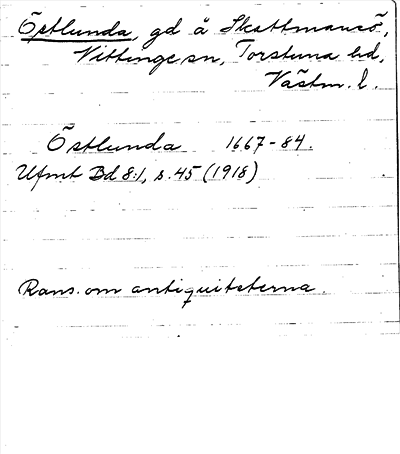 Östlunda, gd å Skattmansö,
Vittinge sn, Torstuna hd,
Västm. l.
Östlunda 1667-84.
Ufmt Bd 8:1, s. 45 (1918)
Rans. om antiquiteterna.